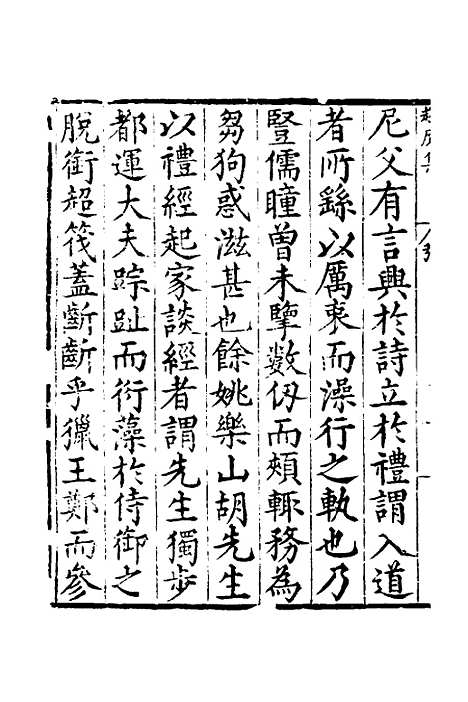 尼父有言興於詩立於禮謂入道
者所繇以厲衷而澡行之軌也乃
豎儒瞳曽未擥數仭而頰輒務為
芻狗惑滋甚也餘姚樂山胡先生
以禮經起家談經者謂先生獨步
都運大夫踪趾而衍藻於侍御之
脫銜超筏蓋齗齗乎獵王鄭而參